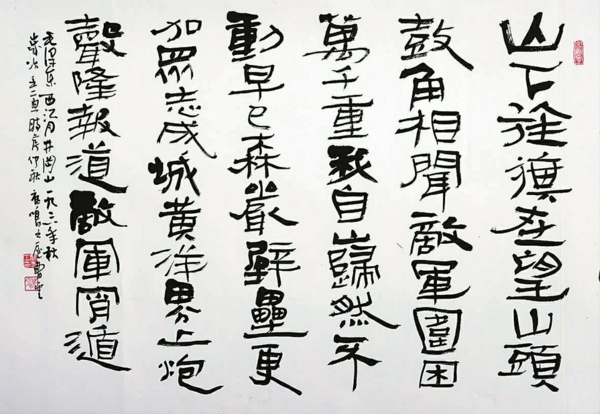 山下旌旗在望山頭
鼓角相聞敵軍圍困
萬千重我自巋然不
動早已森嚴壁壘更
加眾志成城黃洋界上炮
聲隆報道敵軍宵遁
毛泽东西江月井岡山一九二八年秋
時序仲秋